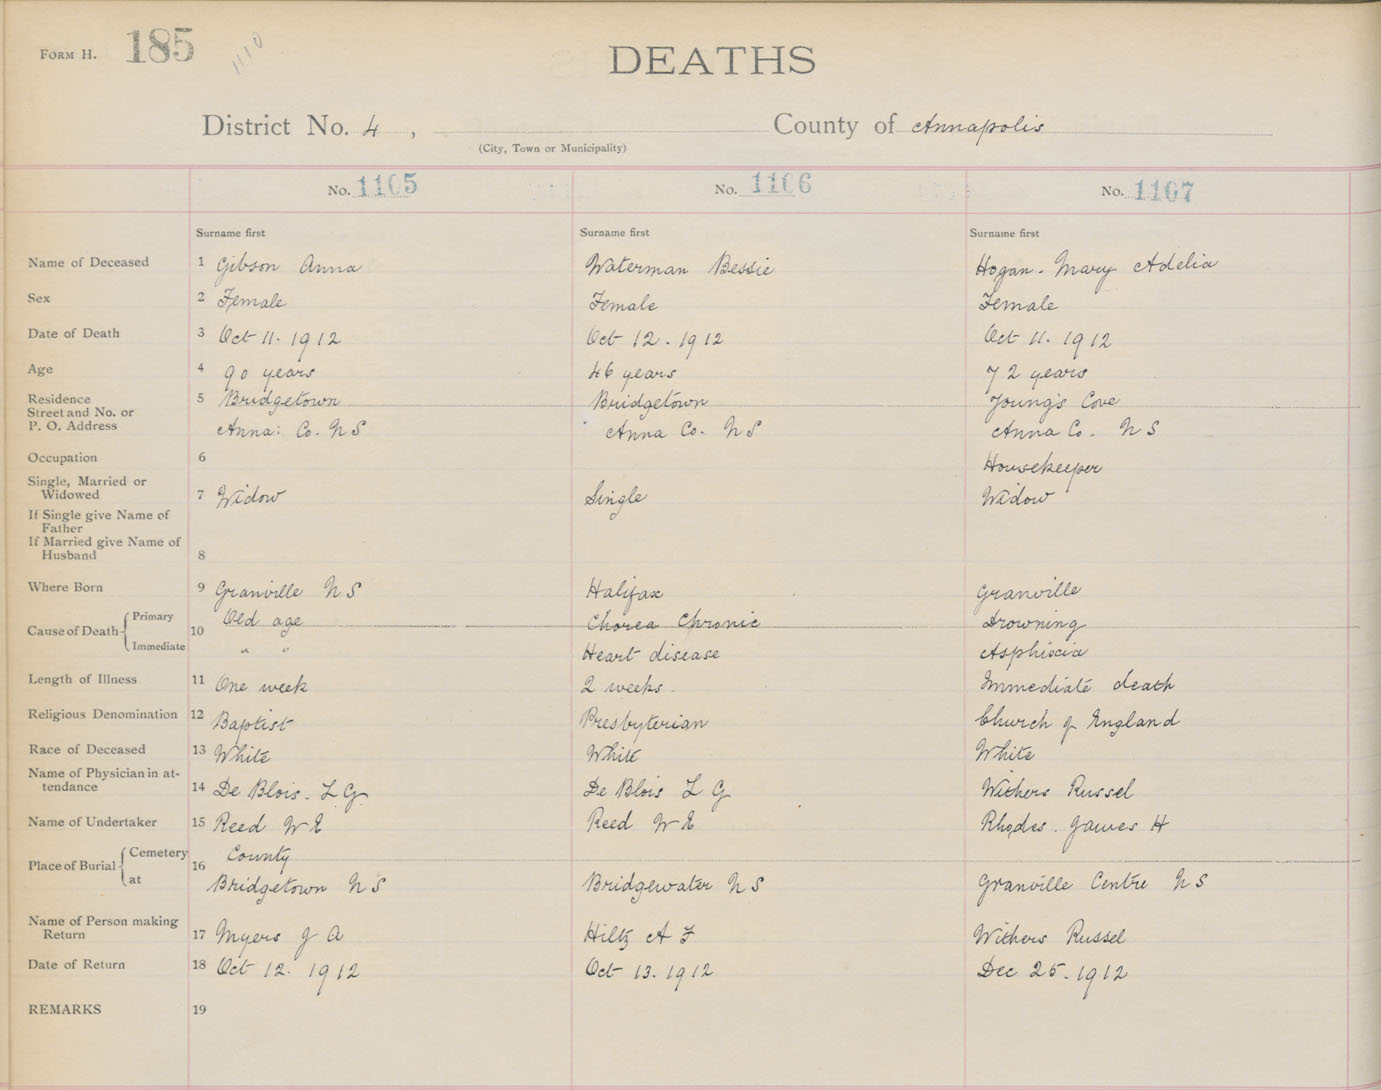 FORM H. 185 1110
DEATHS
District No. 4 , County of Annapolis
(City, Town or Municipality)
No. 1105 No. 1106 No. 1107
Surname first Surname first Surname first
Name of Deceased 1 Gibson Anna Waterman Bessie Hogan. Mary Adelia
Sex 2 Female Female Female
Date of Death 3 Oct 11. 1912 Oct 12. 1912 Oct 11. 1912
Age 4 90 years 46 years 72 years
Residence 5 Bridgetown Bridgetown Young's Cove
Street and No. or
P. O. Address Anna: Co. N S Anna Co. N S Anna Co. N S
Occupation 6 Housekeeper
Single, Married or
Widowed 7 Widow Single Widow
If Single give Name of
Father
If Married give Name of
Husband 8
Where Born 9 Granville N S Halifax Granville
Cause of Death Primary 10 Old age Chorea Chronic Drowning
Immediate " " Heart disease Asphixia
Length of Illness 11 One week 2 weeks. Immediate death
Religious Denomination 12 Baptist Presbyterian Church of England
Race of Deceased 13 White White White
Name of Physician in at-
tendance 14 De Blois. L G De Blois L G Withers Russel
Name of Undertaker 15 Reed W E Reed W E Rhodes. James H
Place of Burial Cemetery 16 County
at Bridgetown N S Bridgewater N S Granville Centre N S
Name of Person making
Return 17 Myers J A Hiltz A F Withers Russel
Date of Return 18 Oct 12. 1912 Oct 13. 1912 Dec 25. 1912
REMARKS 19